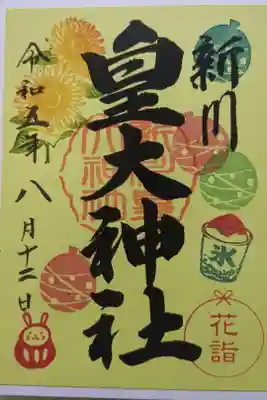 新川
皇大神社
令和五年
八月十二日
氷
花詣